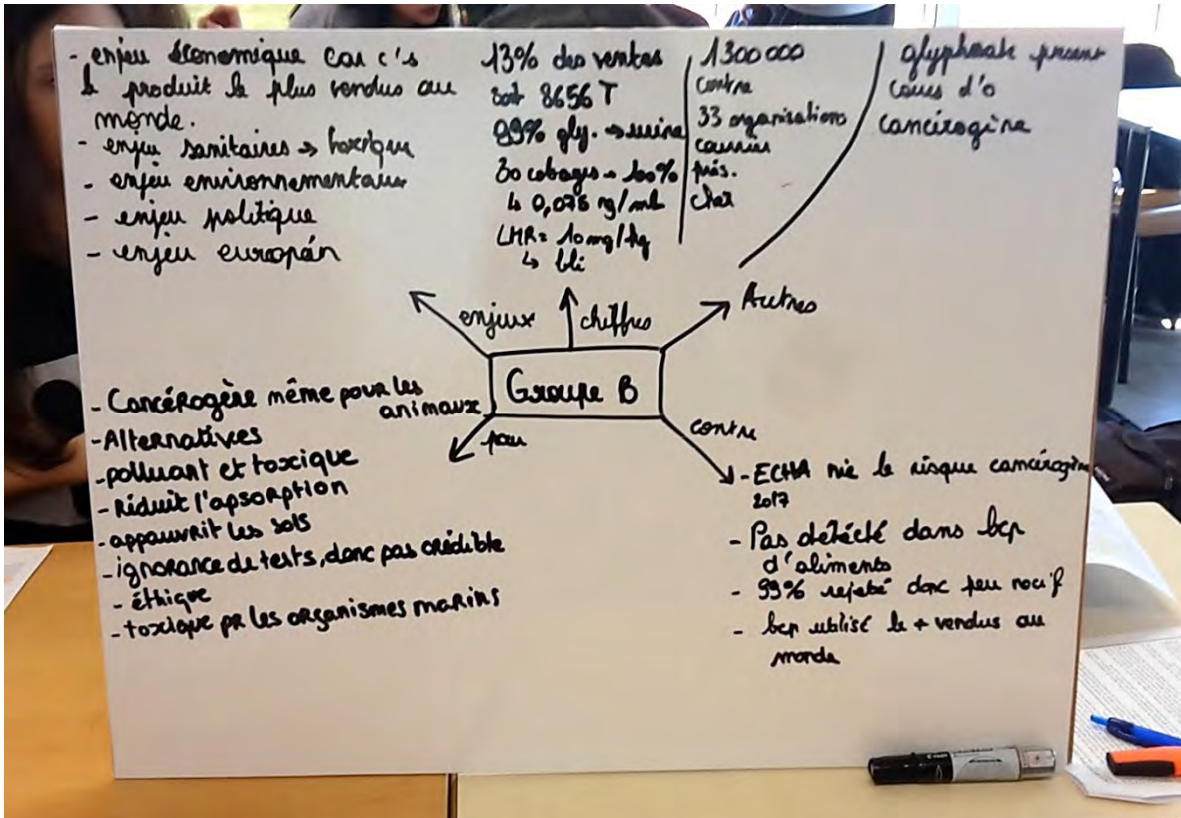 - enjeu économique car c's
le produit le plus vendus au
monde.
- enjeu sanitaires → toxique
- enjeu environnementaux
- enjeu politique
- enjeu europén
13% des ventes
soit 8656 T
99% gly. → urine
30 cobayes → 100%
↳ 0,075 ng/mL
LMR = 10mg/kg
↳ blé
1300 000
contre
33 organisations
courrier
prés.
glyphosate present
cours d'o
cancérogène
enjeux
chiffres
Autres
Groupe B
pour
contre
- Cancérogène même pour les
animaux
- Alternatives
- polluant et toxique
- Réduit l'apsorption
- appauvrit les sols
- ignorance de tests, donc pas crédible
- éthique
- toxique pr les organismes marins
- ECHA nie le risque cancérogène
2017
- Pas détécté dans bcp
d'aliments
- 99% rejeté donc peu nocif
- bcp utilisé le + vendus au
monde